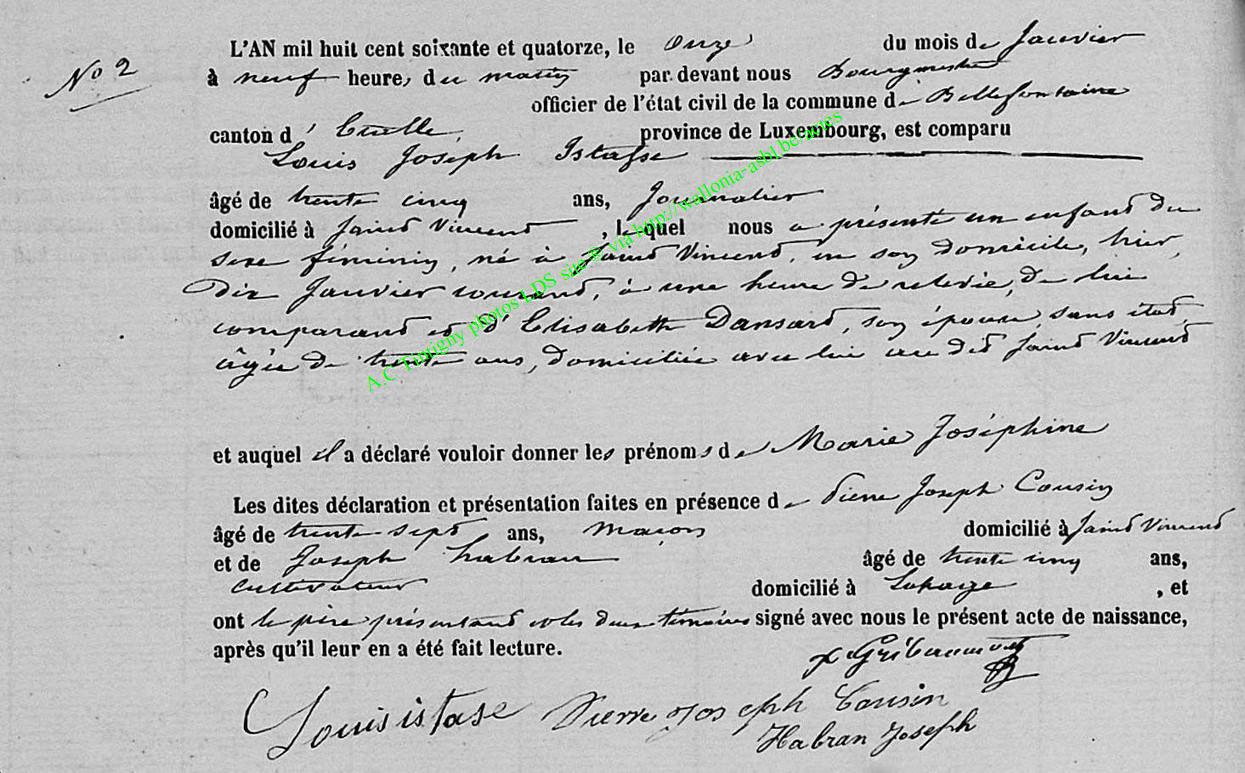 No 2
L'AN mil huit cent soixante et quatorze, le onze du mois de Janvier
à neuf heures du matin par devant nous Bourgmestre
officier de l'état civil de la commune de Bellefontaine
canton d'Etalle, province de Luxembourg, est comparu
Louis Joseph Istasse
âgé de trente cinq ans, Journalier
domicilié à Saint Vincent, lequel nous a présenté un enfant du
sexe féminin, né à Saint Vincent, en son domicile, hier,
dix Janvier courant, à une heure de relevée, de lui
comparant et d'Elisabeth Dansard, son épouse, sans état,
âgée de trente ans, domiciliée avec lui au dit Saint Vincent
et auquel il a déclaré vouloir donner les prénoms de Marie Joséphine
Les dites déclaration et présentation faites en présence de Pierre Joseph Cousin
âgé de trente sept ans, maçon domicilié à Saint Vincent
et de Joseph Habran âgé de trente cinq ans,
cultivateur domicilié à Lahage, et
ont le père présentant et les deux témoins signé avec nous le présent acte de naissance,
après qu'il leur en a été fait lecture.
Louis istase Pierre Joseph Cousin
Habran Joseph
A.C Tintigny photos LDS site © via http://wallonia-asbl.be/actes